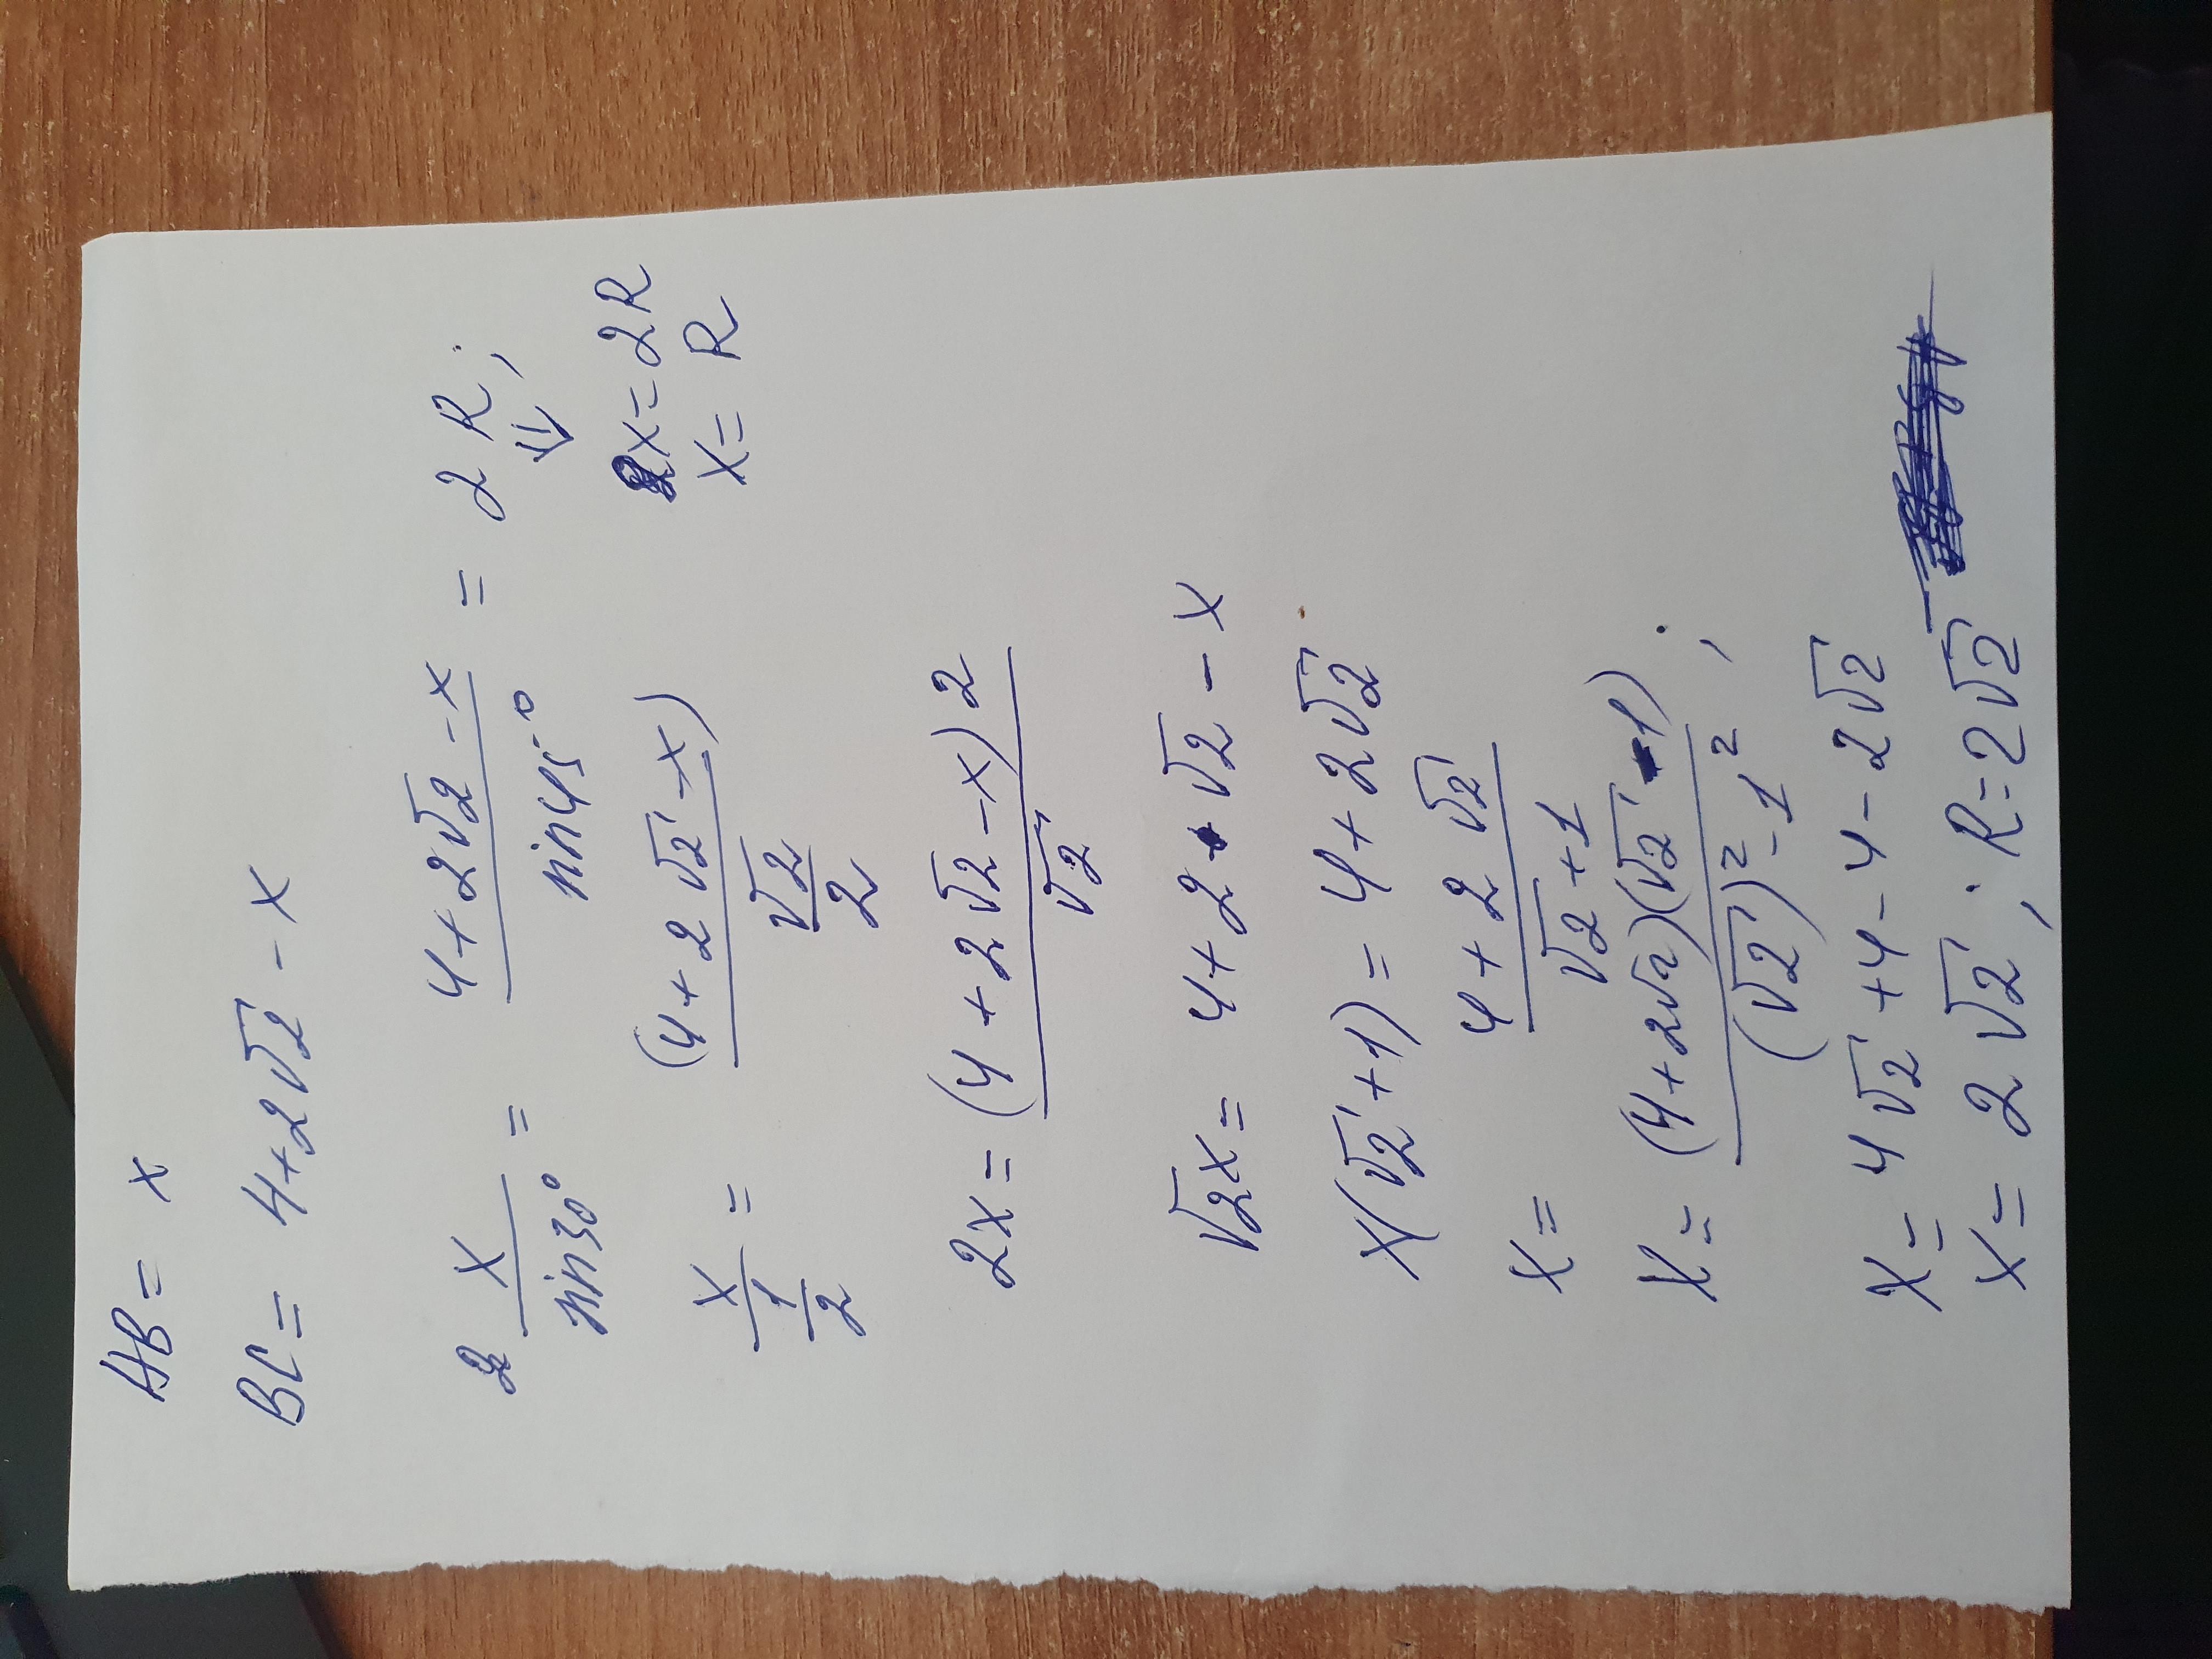 AB = x
BC = 4+2√2 - x
x / sin30° = (4+2√2 - x) / sin45° = 2R;
⇓
x / (1/2) = (4+2√2 - x) / (√2/2)
2x = 2R
x = R
2x = (4+2√2 - x)2 / √2
√2x = 4+2√2 - x
x(√2+1) = 4+2√2
x = (4+2√2) / (√2+1)
x = (4+2√2)(√2-1) / ((√2)²-1²);
x = 4√2+4-4-2√2
x = 2√2; R=2√2